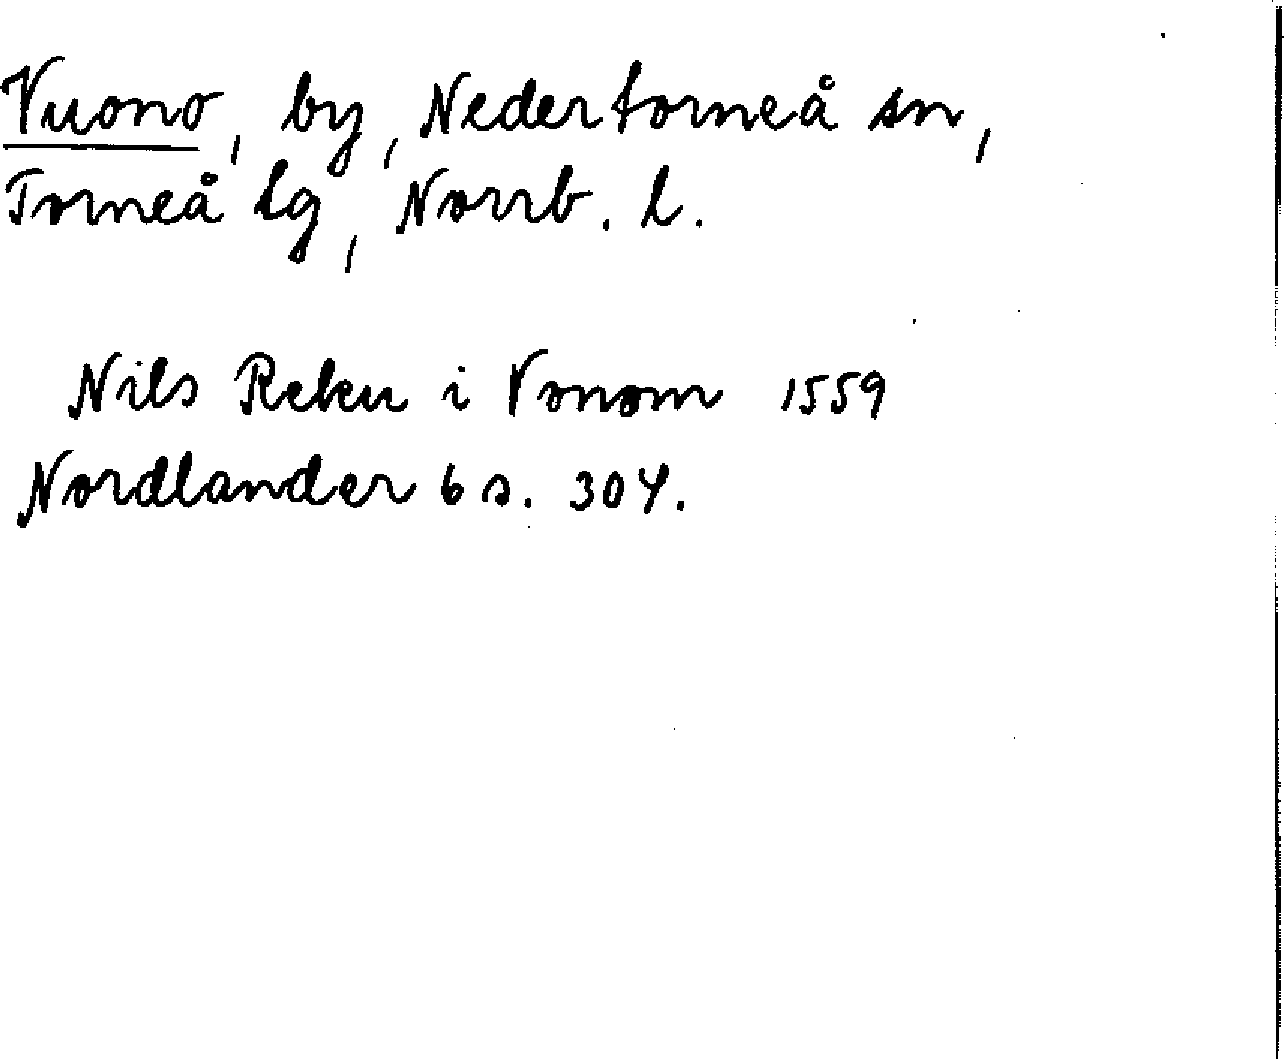 Vuono, by, Nedertorneå sn,
Torneå tg, Norrb. l.
Nils Reku i Vonom 1559
Nordlander 6 s. 304.